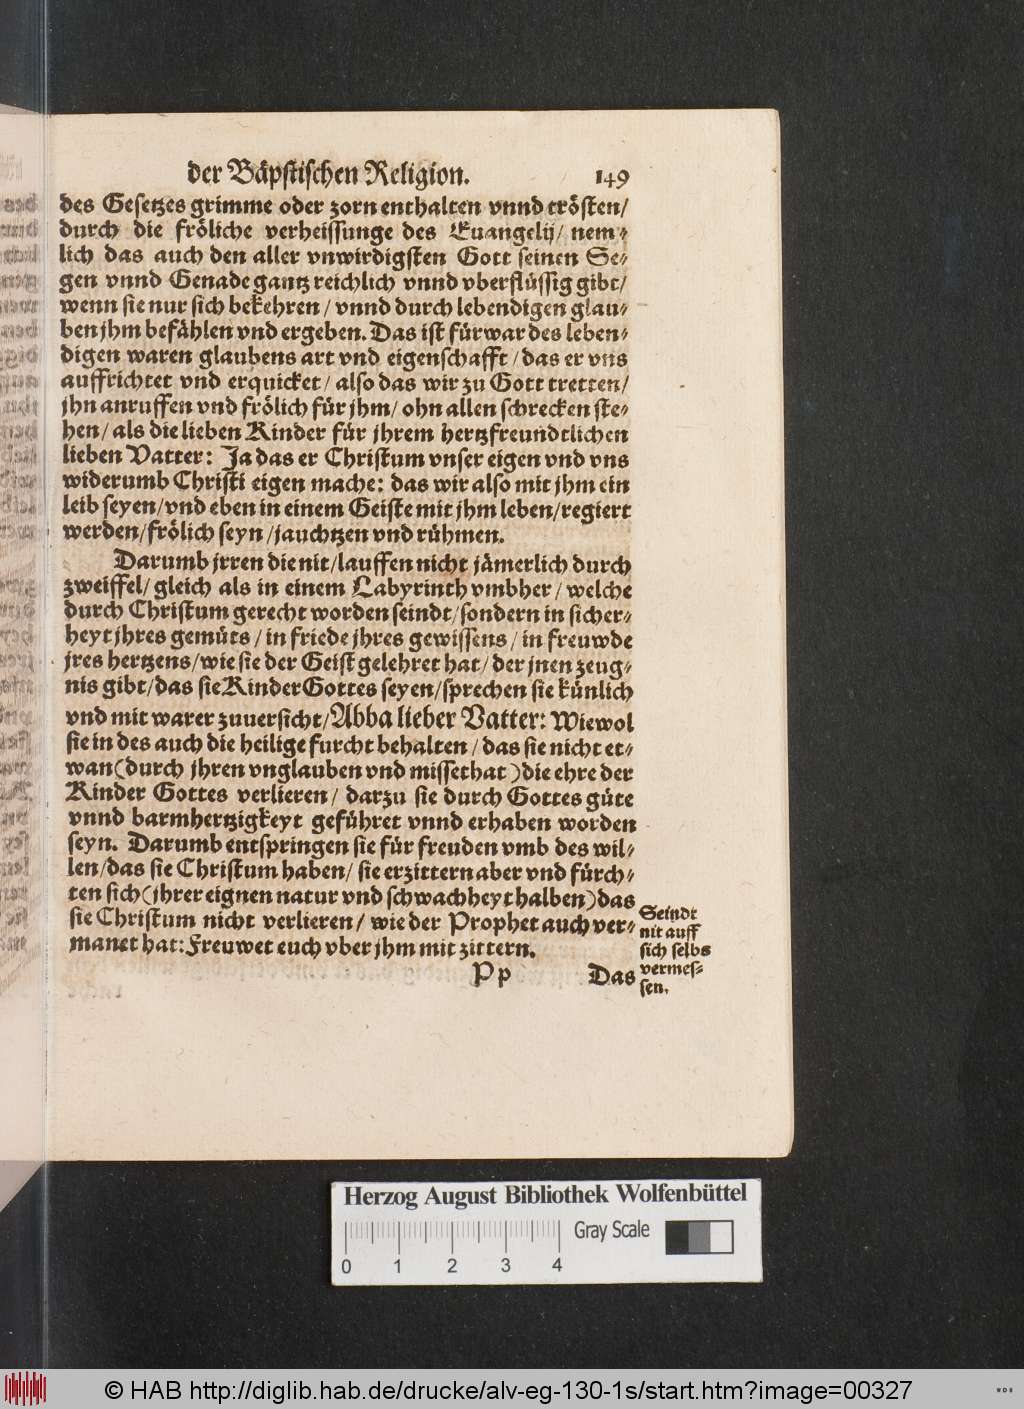 der Bäpstischen Religion. 149
des Gesetzes grimme oder zorn enthalten vnnd trösten/
durch die fröliche verheissunge des Euangelij/ nem⸗
lich das auch den aller vnwirdigsten Gott seinen Se⸗
gen vnnd Genade gantz reichlich vnnd vberflüssig gibt/
wenn sie nur sich bekehren/ vnnd durch lebendigen glau⸗
ben jhm befählen vnd ergeben. Das ist fürwar des leben⸗
digen waren glaubens art vnd eigenschafft/ das er vns
auffrichtet vnd erquicket/ also das wir zu Gott tretten/
jhn anruffen vnd frölich für jhm/ ohn allen schrecken ste⸗
hen/ als die lieben Kinder für jhrem hertzfreundtlichen
lieben Vatter: Ja das er Christum vnser eigen vnd vns
widerumb Christi eigen mache: das wir also mit jhm ein
leib seyen/vnd eben in einem Geiste mit jhm leben/regiert
werden/frölich seyn/jauchtzen vnd rühmen.
Darumb jrren die nit/lauffen nicht jämerlich durch
zweiffel/ gleich als in einem Labyrinth vmbher/ welche
durch Christum gerecht worden seindt/sondern in sicher⸗
heyt jhres gemüts/in friede jhres gewissens/ in freuwde
jres hertzens/wie sie der Geist gelehret hat/ der jnen zeug⸗
nis gibt/das sie Kinder Gottes seyen/sprechen sie künlich
vnd mit warer zuuersicht/Abba lieber Vatter: Wiewol
sie in des auch die heilige furcht behalten/das sie nicht et⸗
wan(durch jhren vnglauben vnd missethat)die ehre der
Kinder Gottes verlieren/ darzu sie durch Gottes güte
vnnd barmhertzigkeyt geführet vnnd erhaben worden
seyn. Darumb entspringen sie für freuden vmb des wil⸗
len/das sie Christum haben/ sie erzittern aber vnd fürch⸗
ten sich(jhrer eignen natur vnd schwachheyt halben)das
sie Christum nicht verlieren/ wie der Prophet auch ver⸗
manet hat: Freuwet euch vber jhm mit zittern.
Seindt
nit auff
sich selbs
vermes⸗
sen.
Pp Das
Herzog August Bibliothek Wolfenbüttel
Gray Scale
0 1 2 3 4
© HAB http://diglib.hab.de/drucke/alv-eg-130-1s/start.htm?image=00327